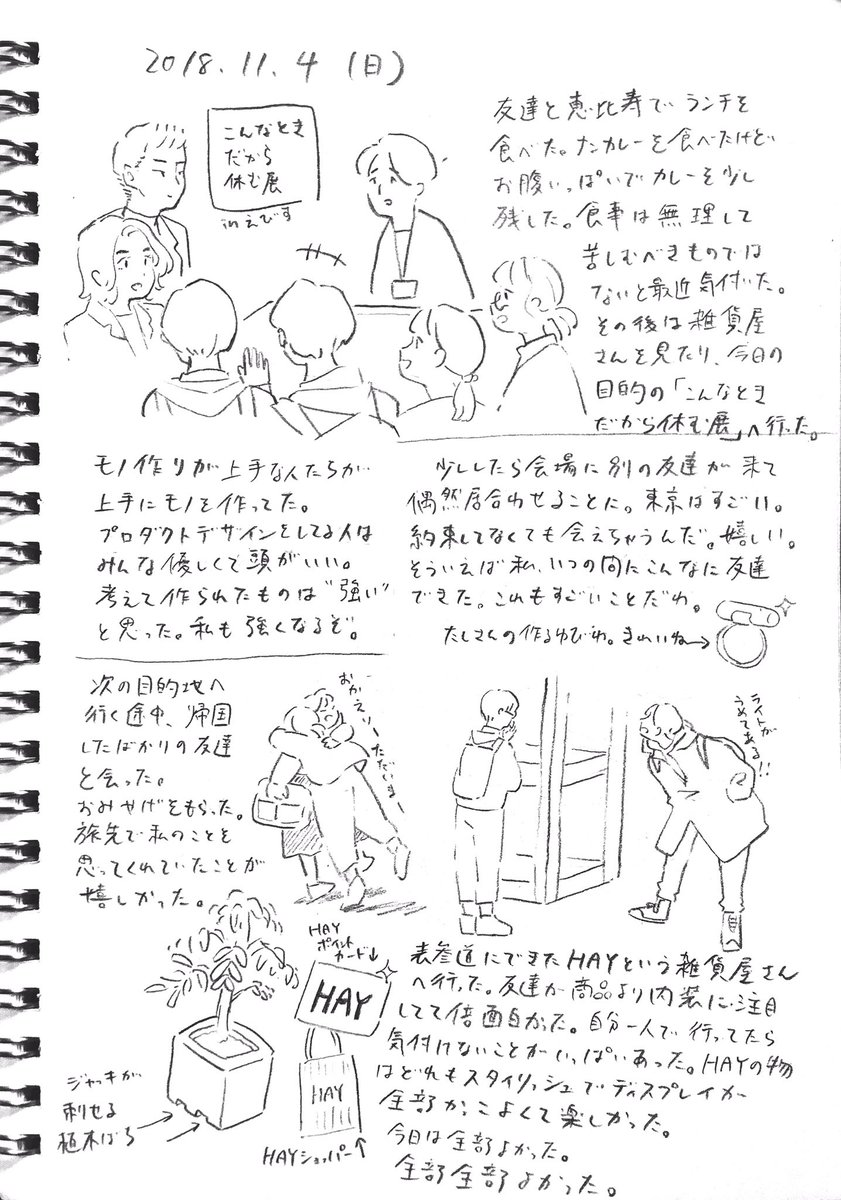 2018.11.4 (日)
こんなとき
だから
休む展
inえびす
友達と恵比寿でランチを
食べた。ナンカレーを食べたけど
お腹いっぱいでカレーを少し
残した。食事は無理して
苦しむべきものでは
ないと最近気付いた。
その後は雑貨屋
さんを見たり、今日の
目的の「こんなとき
だから休む展」へ行った。
モノ作りが上手な人たちが
上手にモノを作ってた。
プロダクトデザインをしてる人は
みんな優しくて頭がいい。
考えて作られたものは“強い”
と思った。私も強くなるぞ。
少ししたら会場に別の友達が来て
偶然居合わせることに。東京はすごい。
約束してなくても会えちゃうんだ。嬉しい。
そういえば私、いつの間にこんなに友達
できた。これもすごいことだわ。
たしさんの作るゆびわ。きれいね→
次の目的地へ
行く途中、帰国
したばかりの友達
と会った。
おみやげをもらった。
旅先で私のことを
思ってくれていたことが
嬉しかった。
おかえりーただいまー
ライトが
うめてある!!
HAY
ポイント
カード↓
HAY
HAY
HAYショッパー↑
ジャッキが
刺せる
植木ばち
表参道にできたHAYという雑貨屋さん
へ行った。友達が商品より内装に注目
してて倍面白かった。自分一人で行ってたら
気付けないことがいっぱいあった。HAYの物
はどれもスタイリッシュでディスプレイが
全部かっこよくて楽しかった。
今日は全部よかった。
全部全部よかった。